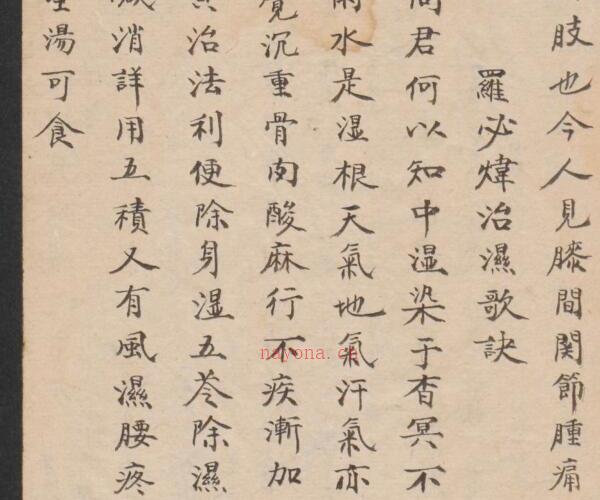 肢也今人見膝間関節腫痛
羅必煒治濕歌訣
問君何以知中湿染于杳冥不
雨水是湿根天氣地氣汗氣亦
覚沉重骨肉酸麻行不疾漸加
治法利便除身湿五苓除濕
減消詳用五積又有風濕腰疼
湯可食
nayona.cn